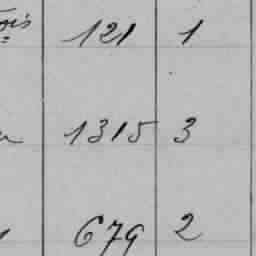 121 1
1315 3
679 2